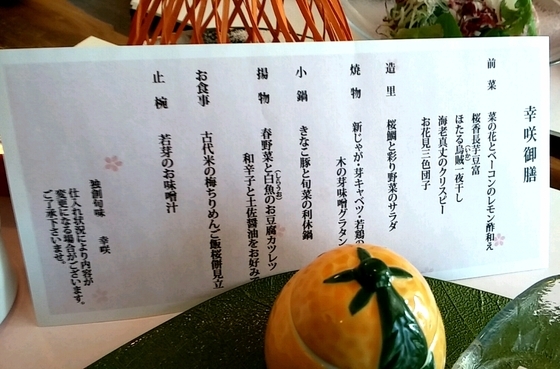 幸咲御膳
前菜 菜の花とベーコンのレモン酢和え
桜香長芋豆富
ほたる烏賊一夜干し
いか
海老真丈のクリスピー
お花見三色団子
造里 桜鯛と彩り野菜のサラダ
焼物 新じゃが・芽キャベツ・若鶏の
木の芽味噌グラタン
小鍋 きなこ豚と旬菜の利休鍋
揚物 春野菜と白魚のお豆腐カツレツ
しらうお
和辛子と土佐醤油をお好み
お食事 古代米の梅ちりめんご飯桜餅見立
止椀 若芽のお味噌汁
独創旬味 幸咲
仕入れ状況により内容が
変更になる場合がございます。
ご了承下さいませ。